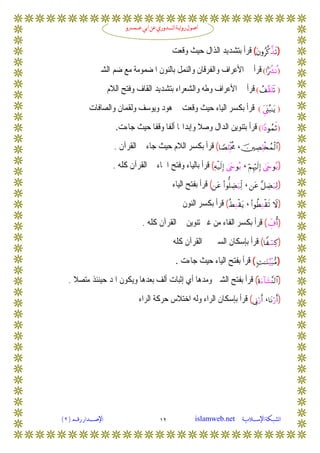 أصول رواية الدوري عن أبي عمرو
(تَذَّكَّرُونَ) قرأ بتشديد الذال حيث وقعت
(نُشُرًا) قرأ الأعراف والفرقان والنمل بالنون ا ضمومة مع ضم الش
(تَلَقَّفُ) قرأ الأعراف وطه والشعراء بتشديد القاف وفتح اللام
(يَٰبُنَيِّ) قرأ بكسر الياء حيث وقعت هود ويوسف ولقمان والصافات
(ثَمُودًا) قرأ بتنوين الدال وصلا وإبدا ا ألفا وقفا حيث جاءت.
(ٱلْمُخْلِصِينَ ، مُخْلِصًا) قرأ بكسر اللام حيث جاء القرآن .
(يُوحَىٰٓ إِلَيْهِمْ ، يُوحَىٰٓ إِلَيْهِ) قرأ بالياء وفتح ا اء القرآن كله .
(لِيَضِلَّ عَن ، لِيَضِلُّوا۟ عَن) قرأ بفتح الياء
(لَا تَقْنِطُوا۟ ، يَقْنِطُ) قرأ بكسر النون
(أُفِّ) قرأ بكسر الفاء من غ تنوين القرآن كله .
(كِسْفًا) قرأ بإسكان الس القرآن كله
(مُّبَيَّنَٰتٍ) قرأ بفتح الياء حيث جاءت .
(ٱلنَّشَآءَةَ) قرأ بفتح الش ومدها أي إثبات ألف بعدها ويكون ا د حينئذ متصلا .
(أَرْنَا، أَرْنِى) قرأ بإسكان الراء وله اختلاس حركة الراء
الشبكة الإسلامية islamweb.net ١٢ الإصدار رقم ( ٢ )